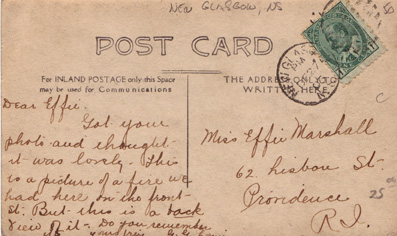 NEW GLASGOW, NS
POST CARD
For INLAND POSTAGE only this Space
may be used for Communications
THE ADDRESS ONLY TO
WRITTEN HERE
Dear Effie.
Got your
photo and thought
it was lovely. This
is a picture of a fire we
had, here on the front
St. But this is a back
view of it - Do you remember
Miss Effie Marshall
62 Lisbon St-
Providence
R.I.
25
C